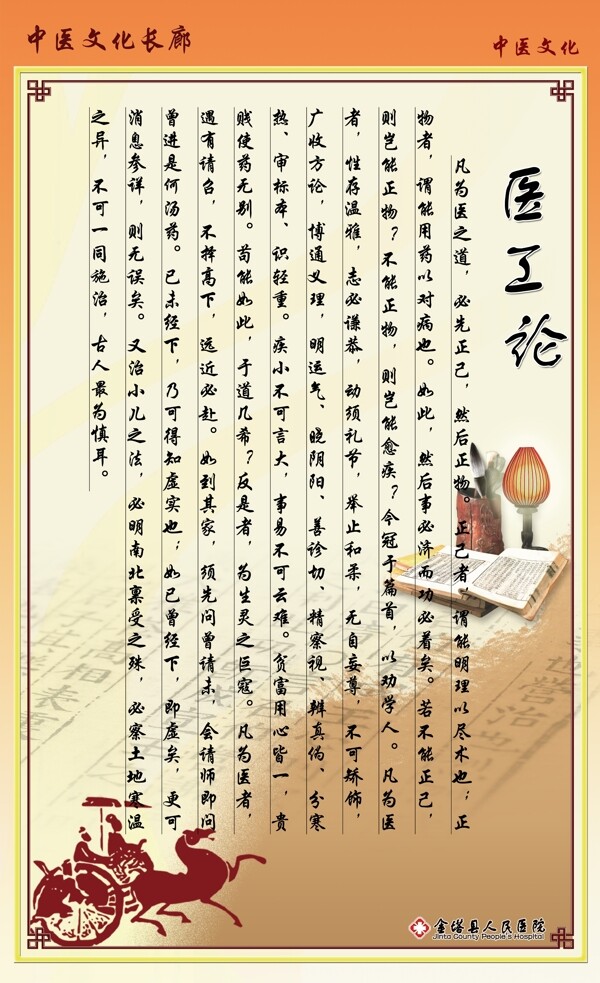 中医文化长廊
中医文化
医工论
凡为医之道，必先正己，然后正物。正己者，谓能明理以尽术也；正
物者，谓能用药以对病也。如此，然后事必济而功必着矣。若不能正己，
则岂能正物？不能正物，则岂能愈疾？今冠于篇首，以劝学人。凡为医
者，性存温雅，志必谦恭，动须礼节，举止和柔，无自妄尊，不可矫饰，
广收方论，博通义理，明运气、晓阴阳、善诊切、精察视、辨真伪、分寒
热、审标本、识轻重。疾小不可言大，事易不可云难。贫富用心皆一，贵
贱使药无别。苟能如此，于道几希？反是者，为生灵之巨寇。凡为医者，
遇有请召，不择高下，远近必赴。如到其家，须先问曾请未，会请师即问
曾进是何汤药。已未经下，乃可得知虚实也；如已曾经下，即虚矣，更可
消息参详，则无误矣。又治小儿之法，必明南北禀受之殊，必察土地寒温
之异，不可一同施治，古人最为慎耳。
金塔县人民医院
Jinta County People's Hospital